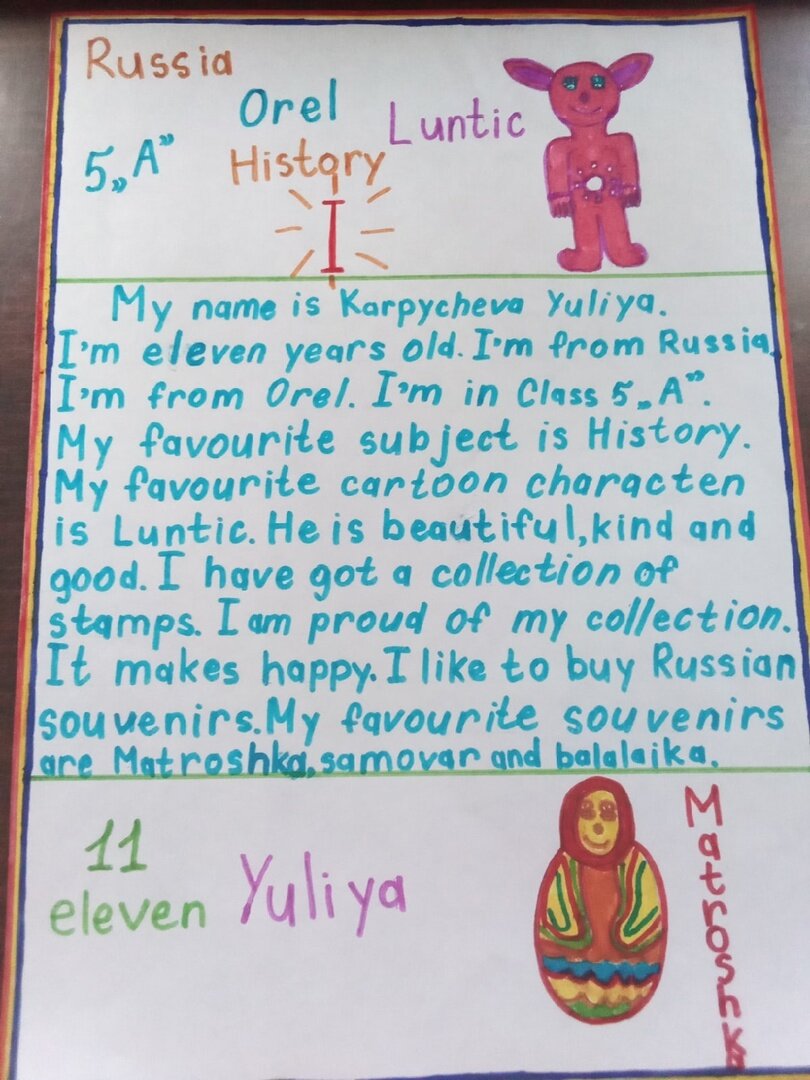 Russia
Orel
Luntic
5„A”
History
I
My name is Karpycheva Yuliya.
I'm eleven years old. I'm from Russia.
I'm from Orel. I'm in Class 5„A”.
My favourite subject is History.
My favourite cartoon characten
is Luntic. He is beautiful, kind and
good. I have got a collection of
stamps. I am proud of my collection.
It makes happy. I like to buy Russian
souvenirs. My favourite souvenirs
are Matroshka, samovar and balalaika.
11
eleven
Yuliya
Matroshka